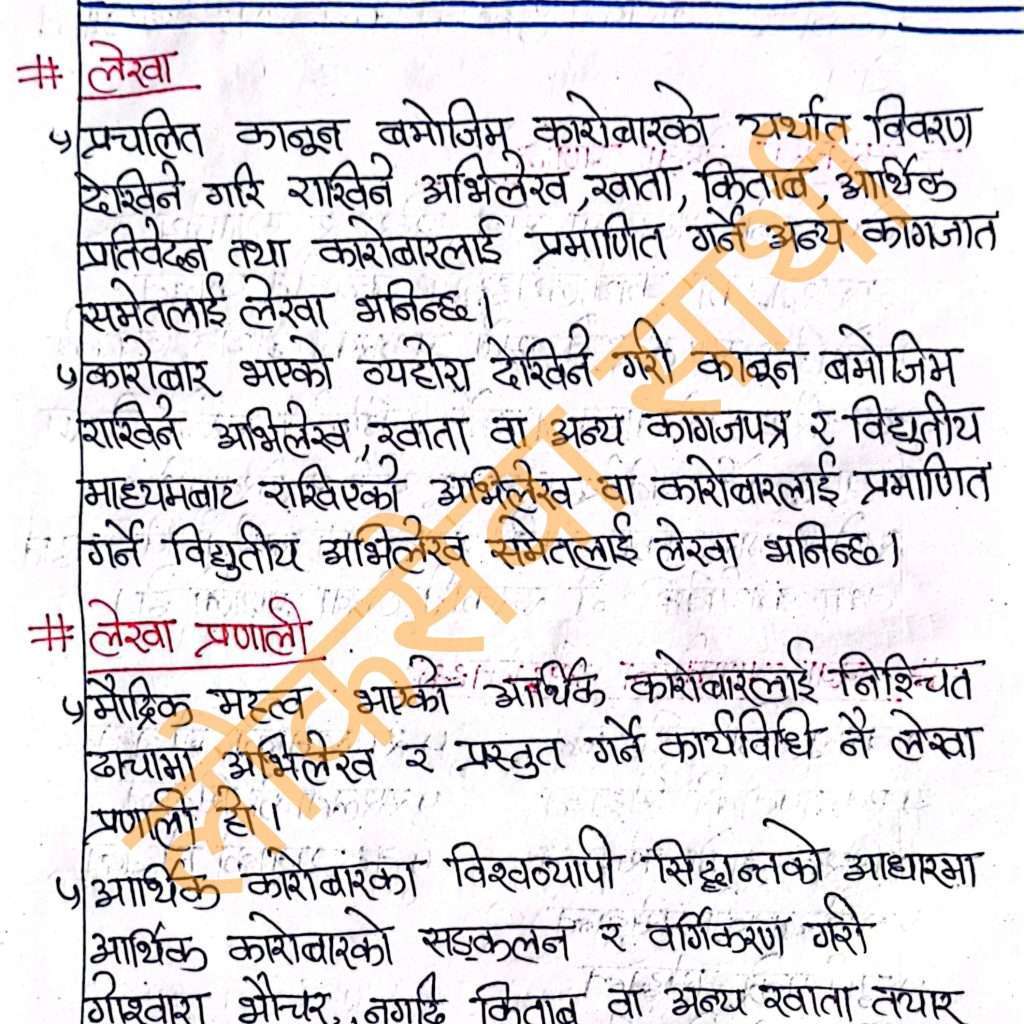 # लेखा
५ प्रचलित कानून बमोजिम कारोबारको यर्थात विवरण
देखिने गरि राखिने अभिलेख, खाता, किताब, आर्थिक
प्रतिवेदन तथा कारोबारलाई प्रमाणित गर्ने अन्य कागजात
समेतलाई लेखा भनिन्छ।
५ कारोबार भएको व्यहोरा देखिने गरी कानून बमोजिम
राखिने अभिलेख, खाता वा अन्य कागजपत्र र विद्युतीय
माध्यमबाट राखिएको अभिलेख वा कारोबारलाई प्रमाणित
गर्ने विद्युतीय अभिलेख समेतलाई लेखा भनिन्छ।
# लेखा प्रणाली
५ मौद्रिक महत्व भएको आर्थिक कारोबारलाई निश्चित
ढाचामा अभिलेख र प्रस्तुत गर्ने कार्यविधि नै लेखा
प्रणाली हो।
५ आर्थिक कारोबारका विश्वव्यापी सिद्धान्तको आधारमा
आर्थिक कारोबारको सङ्कलन र वर्गिकरण गरी
गोश्वारा भौचर, नगदि किताब वा अन्य खाता तयार
लोकसेवा साथी